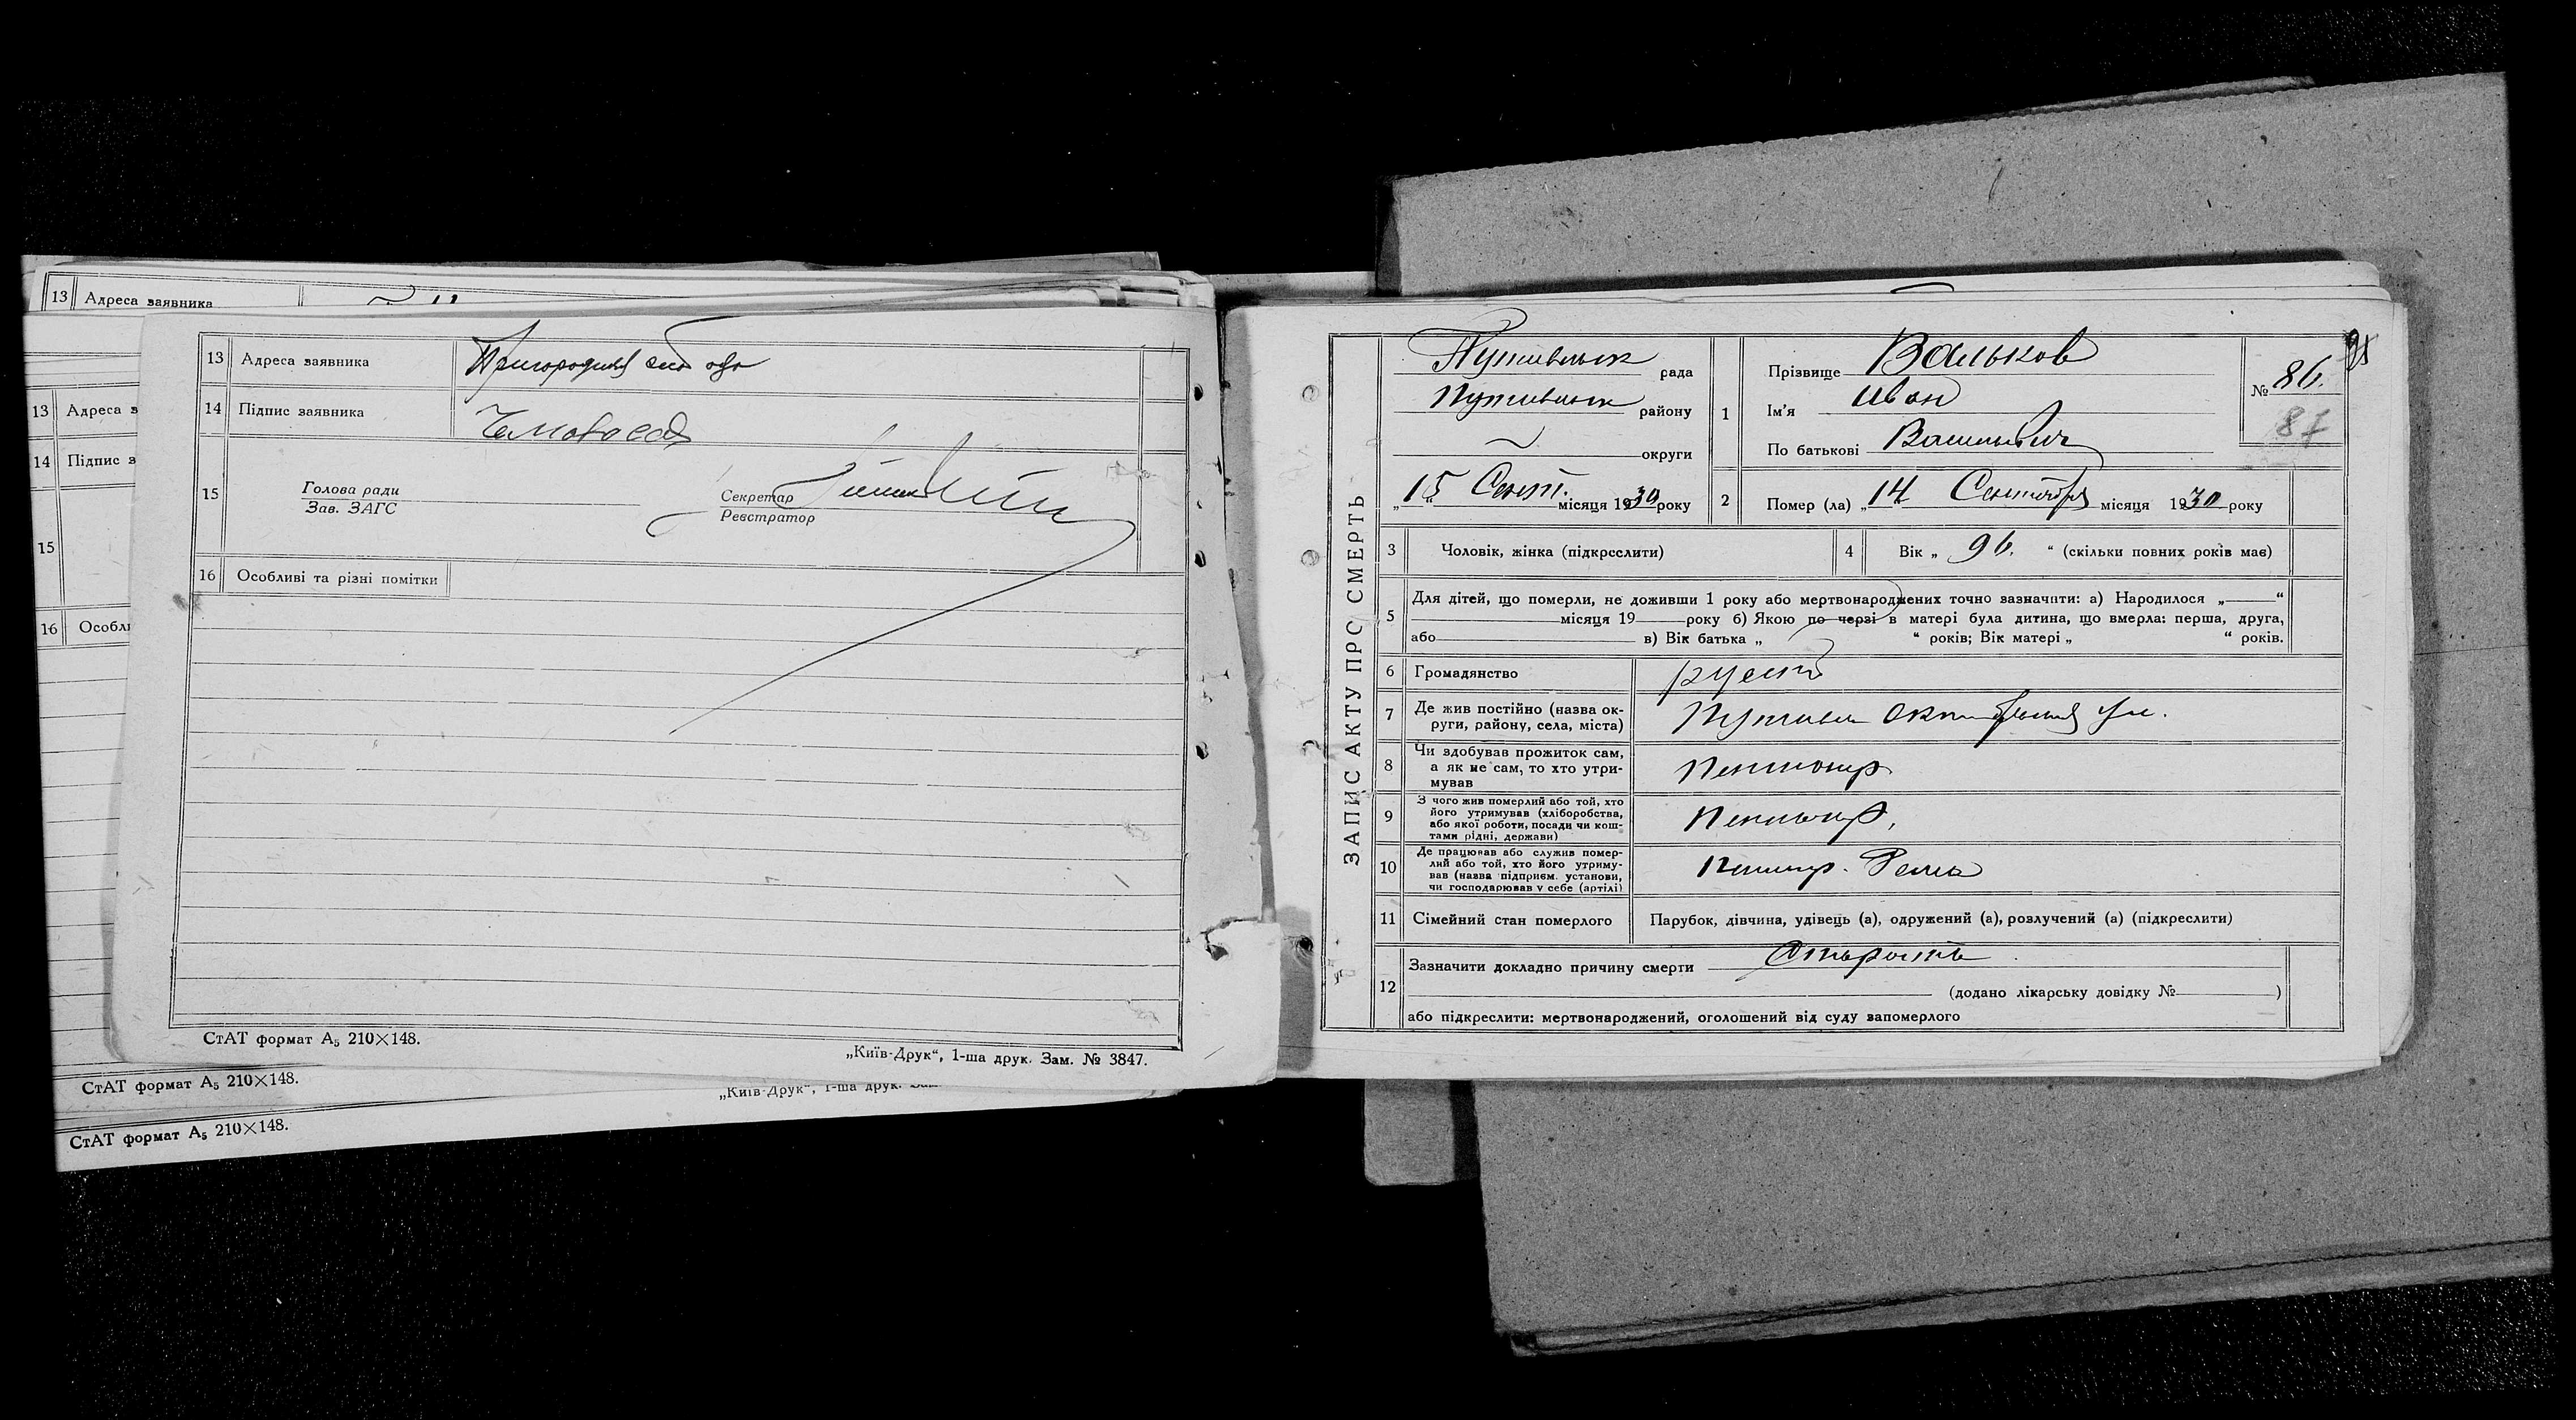 13 Адреса заявника
13 Адреса з
14 Підпис з
15
16 Особлі
13 Адреса заявника Пригородняя слобода
14 Підпис заявника
15 Голова ради
Зав. ЗАГС
Секретар
Реєстратор
16 Особливі та різні помітки
СтАТ формат А5 210×148.
„Київ-Друк“, 1-ша друк. Зам. № 3847.
СтАТ формат А5 210×148.
„Київ-Друк“, 1-ша друк.
СтАТ формат А5 210×148.
ЗАПИС АКТУ ПРО СМЕРТЬ
Путивльск рада
Путивльск району
округи
„15“ Сент. місяця 1930 року
1 Прізвище Вальков
Ім'я Иван
По батькові
№ 86.
87
2 Помер (ла) „14 Сентября місяця 1930 року
3 Чоловік, жінка (підкреслити)
4 Вік „ 96. “ (скільки повних років має)
5 Для дітей, що померли, не доживши 1 року або мертвонароджених точно зазначити: а) Народилося „ “
місяця 19 року б) Якою по черзі в матері була дитина, що вмерла: перша, друга,
або в) Вік батька „ “ років; Вік матері „ “ років.
6 Громадянство руский
7 Де жив постійно (назва ок-
руги, району, села, міста) Путивль Октябрьская ул.
8 Чи здобував прожиток сам,
а як не сам, то хто утри-
мував Пенсионер
9 З чого жив померлий або той, хто
його утримував (хліборобства,
або якої роботи, посади чи кош-
тами рідні, держави) Пенсионер,
10 Де працював або служив помер-
лий або той, хто його утриму-
вав (назва підприєм. установи,
чи господарював у себе (артілі)
11 Сімейний стан померлого Парубок, дівчина, удівець (а), одружений (а), розлучений (а) (підкреслити)
12 Зазначити докладно причину смерти Старость
(додано лікарську довідку № )
або підкреслити: мертвонароджений, оголошений від суду запомерлого